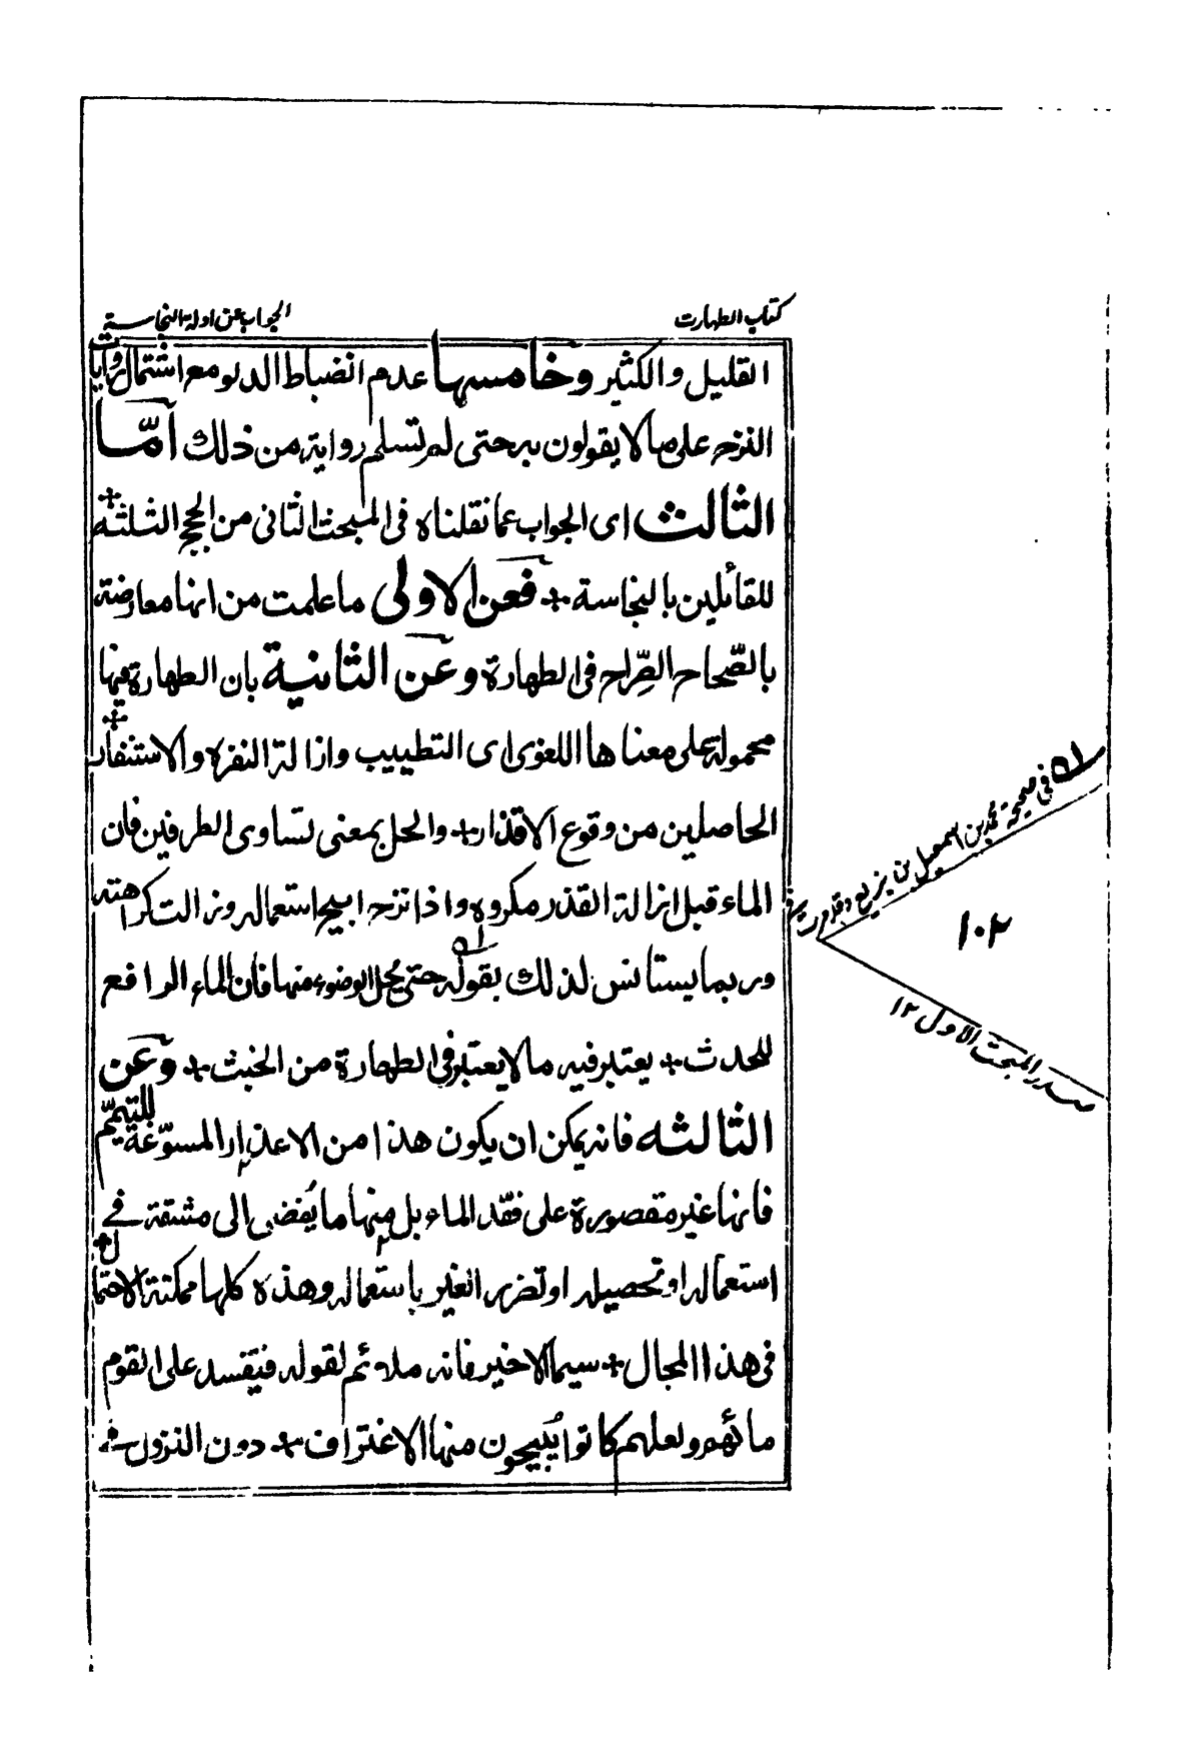 كتاب الطهارت
الجواب عن ادلة النجاسة
القليل والكثير وخامسها عدم انضباط الدلو مع اشتمال روايات
النزح على ما لا يقولون به حتى لم تسلم رواية من ذلك امّا
الثالث اى الجواب عما نقلناه فى المبحث الثانى من الحجج الثلثة
للقائلين بالنجاسة + فعن الاولى ما علمت من انها معارضة
بالصّحاح الصِّراح فى الطهارة وعن الثانية بان الطهارة فيها
محمولة على معناها اللغوى اى التطييب وازالة النفرة والاستنفار
الحاصلين من وقوع الاقذار + والحل بمعنى تساوى الطرفين فان
الماء قبل ازالة القذر مكروه واذا نزح ابيح استعماله وزالت كراهته
وربما يستانس لذلك بقوله حتى يحل الوضوء منها فان الماء الرافع
للحدث + يعتبر فيه ما لا يعتبر فى الطهارة من الخبث + وعن
الثالثه فانه يمكن ان يكون هذا من الاعذار المسوّغة للتيمّم
فانها غير مقصورة على فقد الماء بل منها ما يُفضى الى مشقة فے
استعماله او تحصيله او تضرر الغير باستعماله وهذه كلها ممكنة الاحتمال
فى هذا المجال + سيما الاخير فانه ملائم لقوله فيفسد على القوم
مائهم ولعلهم كانوا يُبيحون منها الاغتراف + دون النزول فے
ا۵ فى صحيحة محمد بن اسمعيل بن بزيع وقد مرت فى
صدر المبحث الاول ١٢
١٠٢